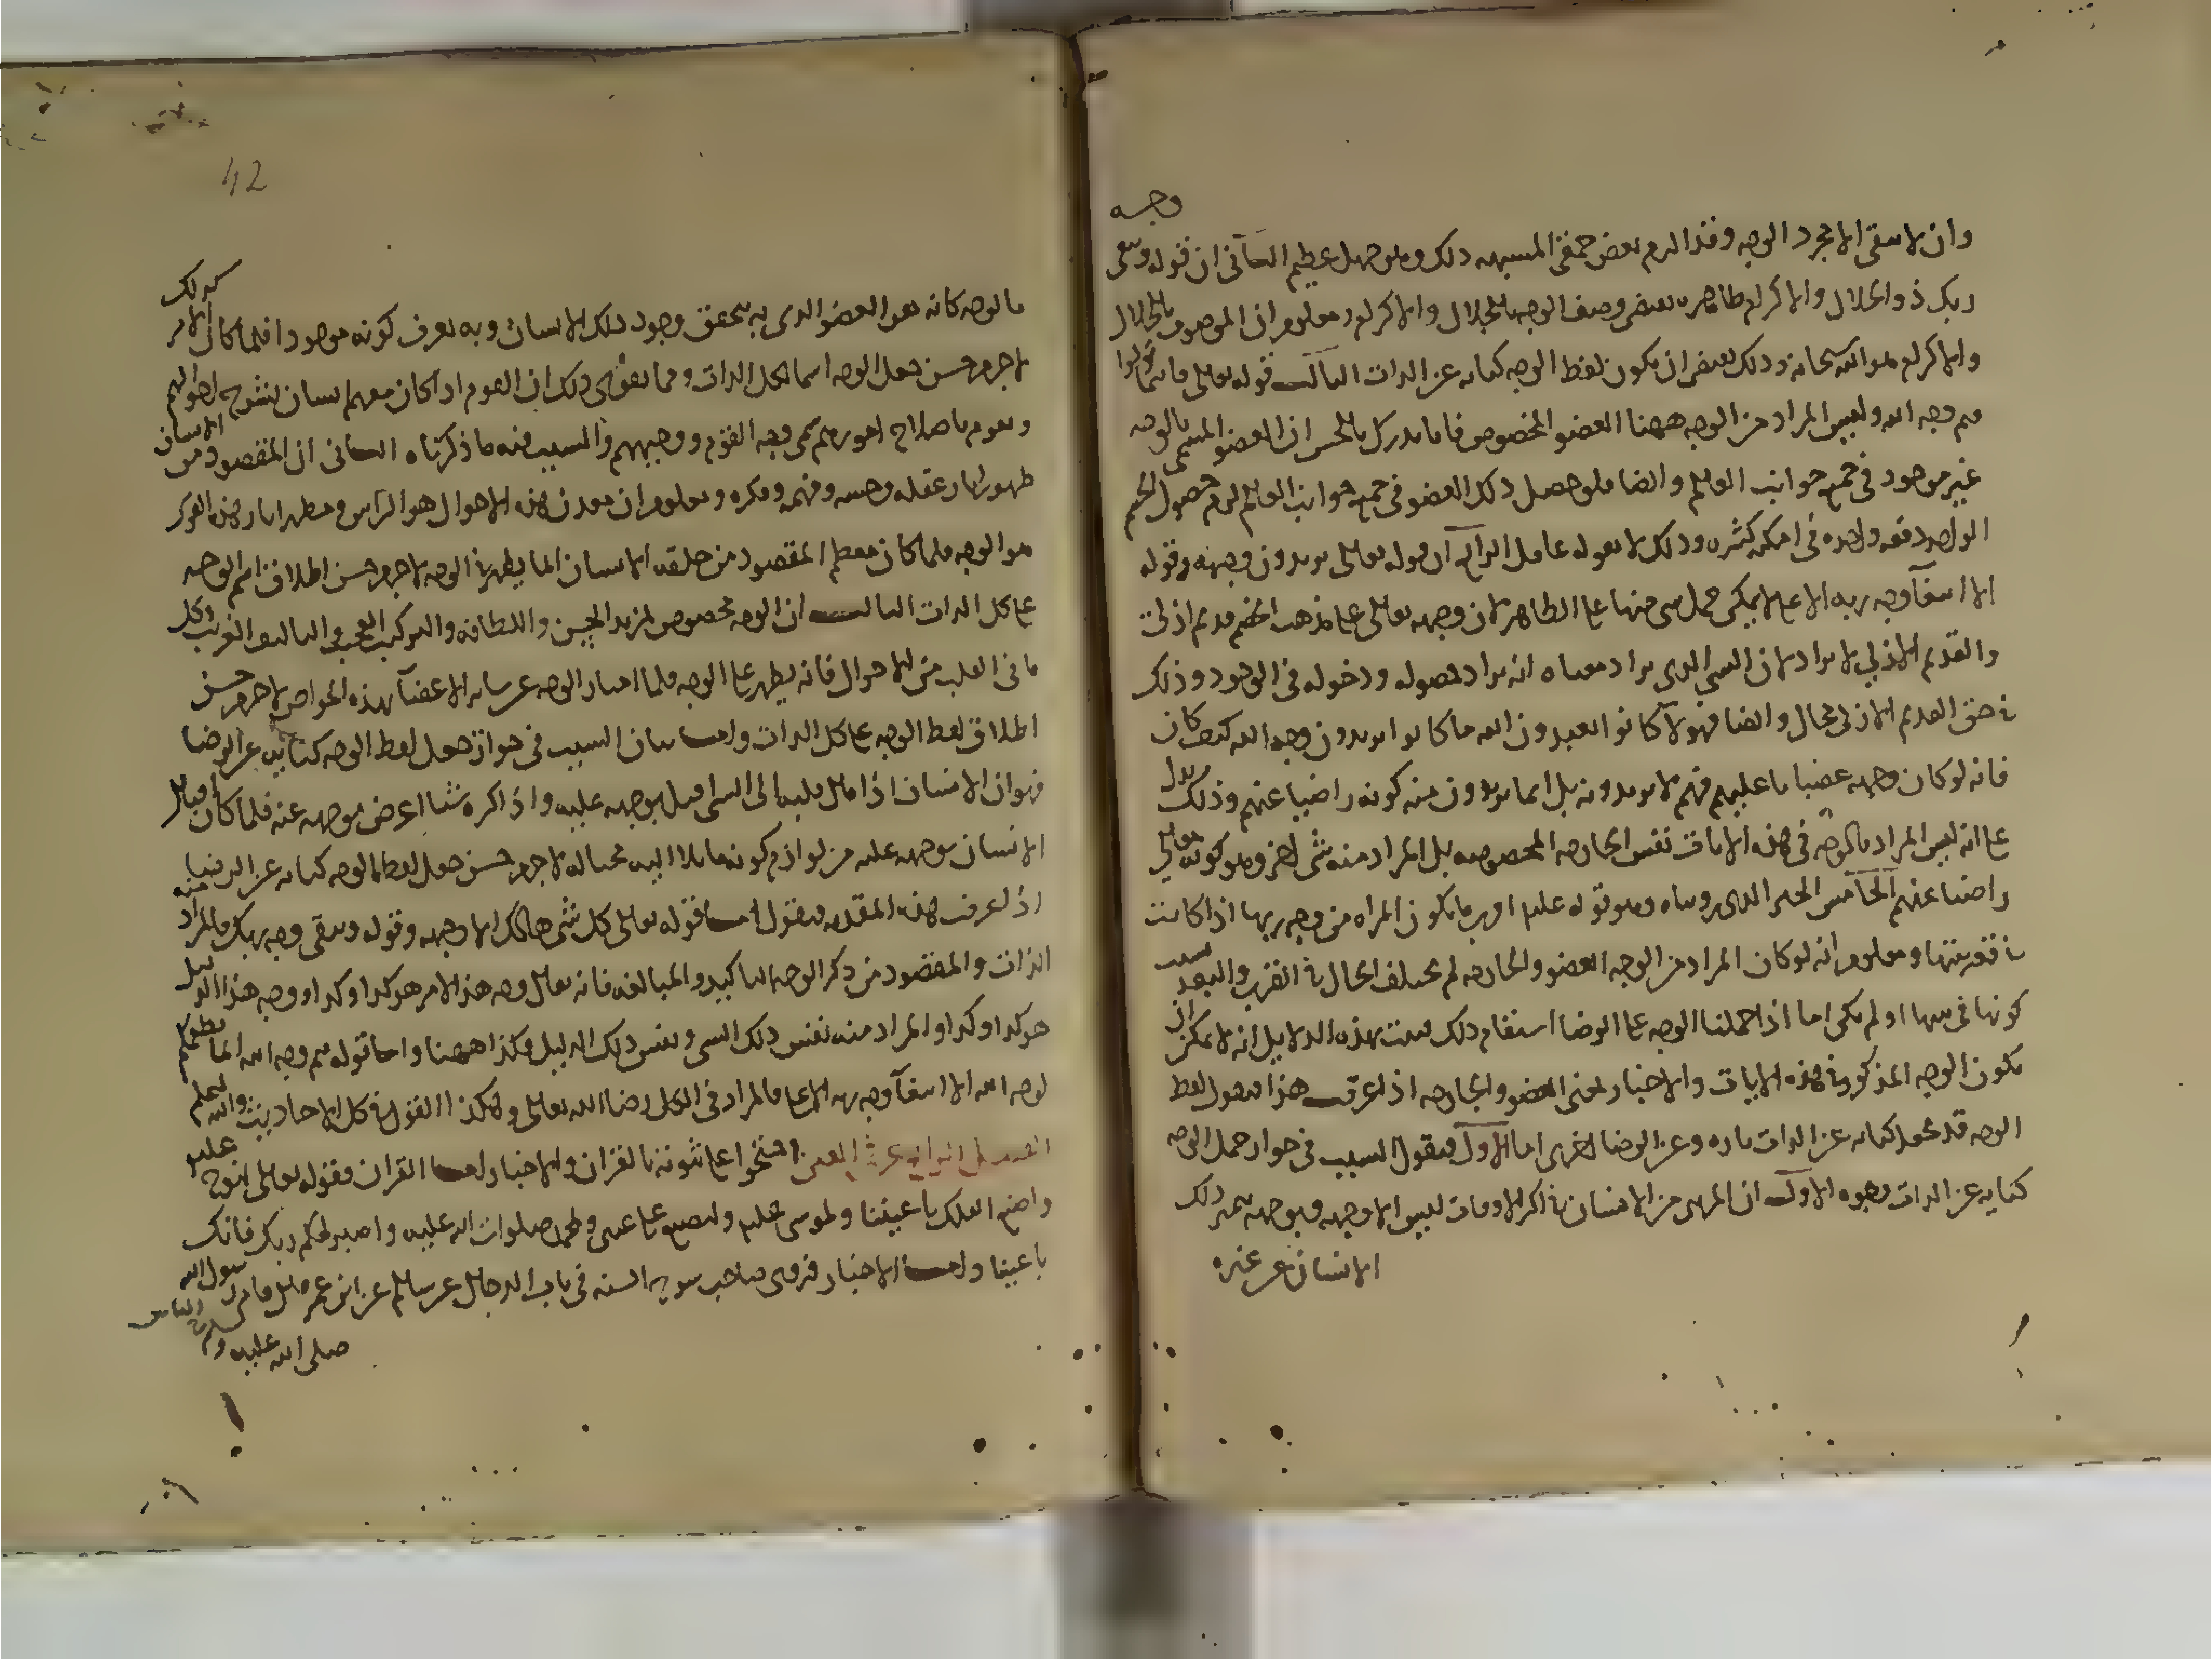 وجه
وان لا يبقى الا مجرد الوجه وقد الزم بعض حمقى المشبهه ذلك وهو جهل عظيم الثاني ان قوله ويبقى
ربك ذو الجلال والاكرام ظاهره يقتضى وصف الوجه بالجلال والاكرام ومعلوم ان الموصوف بالجلال
والاكرام هو الله سبحانه وذلك يقتضى ان يكون لفظ الوجه كنايه عن الذات الثالث قوله تعالى فاينما تولوا
فثم وجه الله وليس المراد من الوجه ههنا العضو المخصوص فانا ندرك بالحس ان العضو المسمى بالوجه
غير موجود فى جميع جوانب العالم وايضا فلو حصل ذلك العضو فى جميع جوانب العالم لزم حصول الجسم
الواحد دفعه واحده فى امكنه كثيره وذلك لا يقوله عاقل الرابع ان قوله تعالى يريدون وجهه وقوله
الا ابتغآ وجه ربه الاعلى لا يمكن حمل شى منها على الظاهر لان وجهه تعالى على مذهب الخصم قديم ازلى
والقديم الازلى لا يراد لان الشى الذى يراد معناه انه يراد حصوله ودخوله فى الوجود وذلك
فى حق القديم الازلى محال وايضا فهولآ كانوا يعبدون الله ما كانوا يريدون وجه الله كيف كان
فانه لو كان وجهه غضبانا عليهم فهم لا يريدونه بل انما يريدون منه كونه راضيا عنهم وذلك يدل
على انه ليس المراد بالوجه فى هذه الايات نفس الجارحه المخصوصه بل المراد منه شى اخر وهو كونه تعالى
راضيا عنهم الخامس الخبر الذى رويناه وهو قوله عليه اقرب ما تكون المراه من وجه ربها اذا كانت
فى قعر بيتها ومعلوم انه لو كان المراد من الوجه العضو والجارحه لم يختلف الحال فى القرب والبعد بسبب
كونها فى بيتها او لم تكن اما اذا حملنا الوجه على الرضا استقام ذلك فثبت بهذه الدلايل انه لا يمكن ان
يكون الوجه المذكور فى هذه الايات والاخبار بمعنى العضو والجارحه اذا عرفت هذا فنقول لفظ
الوجه قد يجعل كنايه عن الذات تاره وعن الرضا اخرى اما الاول فنقول السبب فى جواز جعل الوجه
كنايه عن الذات وجوه الاول ان المرى من الانسان فى اكثر الاوقات ليس الا وجهه وبوجهه يتميز ذلك
الانسان عن غيره
42
كذلك
فالوجه كانه هو العضو الذى به يتحقق وجود ذلك الانسان وبه يعرف كونه موجودا فلما كان الامر
لا جرم حسن جعل الوجه اسما لكل الذات ومما يقوى ذلك ان القوم اذا كان معهم انسان يشرح احوالهم
ويقوم باصلاح امورهم سمى وجه القوم ووجيههم والسبب فيه ما ذكرناه الثانى ان المقصود من الانسان
ظهور اثار عقله وحسه وفهمه وفكره ومعلوم ان معدن هذه الاحوال هو الراس ومظهر اثار هذه القوى
هو الوجه فلما كان معظم المقصود من خلقه الانسان انما يظهر فى الوجه لا جرم حسن اطلاق اسم الوجه
على كل الذات الثالث ان الوجه مخصوص بمزيد الحسن واللطافه والتركيب العجيب والتاليف الغريب وكل
ما فى القلب من الاحوال فانه يظهر على الوجه فلما امتاز الوجه عن ساير الاعضآ بهذه الخواص لا جرم حسن
اطلاق لفظ الوجه على كل الذات واما بيان السبب فى جواز جعل لفظ الوجه كنايه عن الرضا
فهو ان الانسان اذا مال قلبه الى الشى اقبل بوجهه عليه واذا كره شيا اعرض بوجهه عنه فلما كان اقبال
الانسان بوجهه عليه من لوازم كونه مايلا اليه محبا له لا جرم حسن جعل لفظ الوجه كنايه عن الرضا
اذا عرفت هذه المقدمه فنقول اما قوله تعالى كل شى هالك الا وجهه وقوله ويبقى وجه ربك فالمراد منه
الذات والمقصود من ذكر الوجه التاكيد والمبالغه فانه يقال وجه هذا الامر هو كذا وكذا ووجه هذا الدليل
هو كذا وكذا والمراد منه نفس ذلك الشى ونفس ذلك الدليل فكذا ههنا واما قوله فثم وجه الله انما نطعمكم
لوجه الله الا ابتغآ وجه ربه الاعلى فالمراد فى الكل رضا الله تعالى وهكذا القول فى كل الاحاديث والله اعلم
الفصل الرابع عشر فى العين احتجوا على ثبوته بالقران والاخبار اما القران فقوله تعالى لنوح عليه
واصنع الفلك باعيننا ولموسى عليه ولتصنع على عينى ولمحمد صلوات الله عليه واصبر لحكم ربك فانك
باعيننا واما الاخبار فروى صاحب شرح السنه فى باب الدجال عن سالم عن ابن عمر قال قام رسول الله
صلى الله عليه وسلم فى الناس